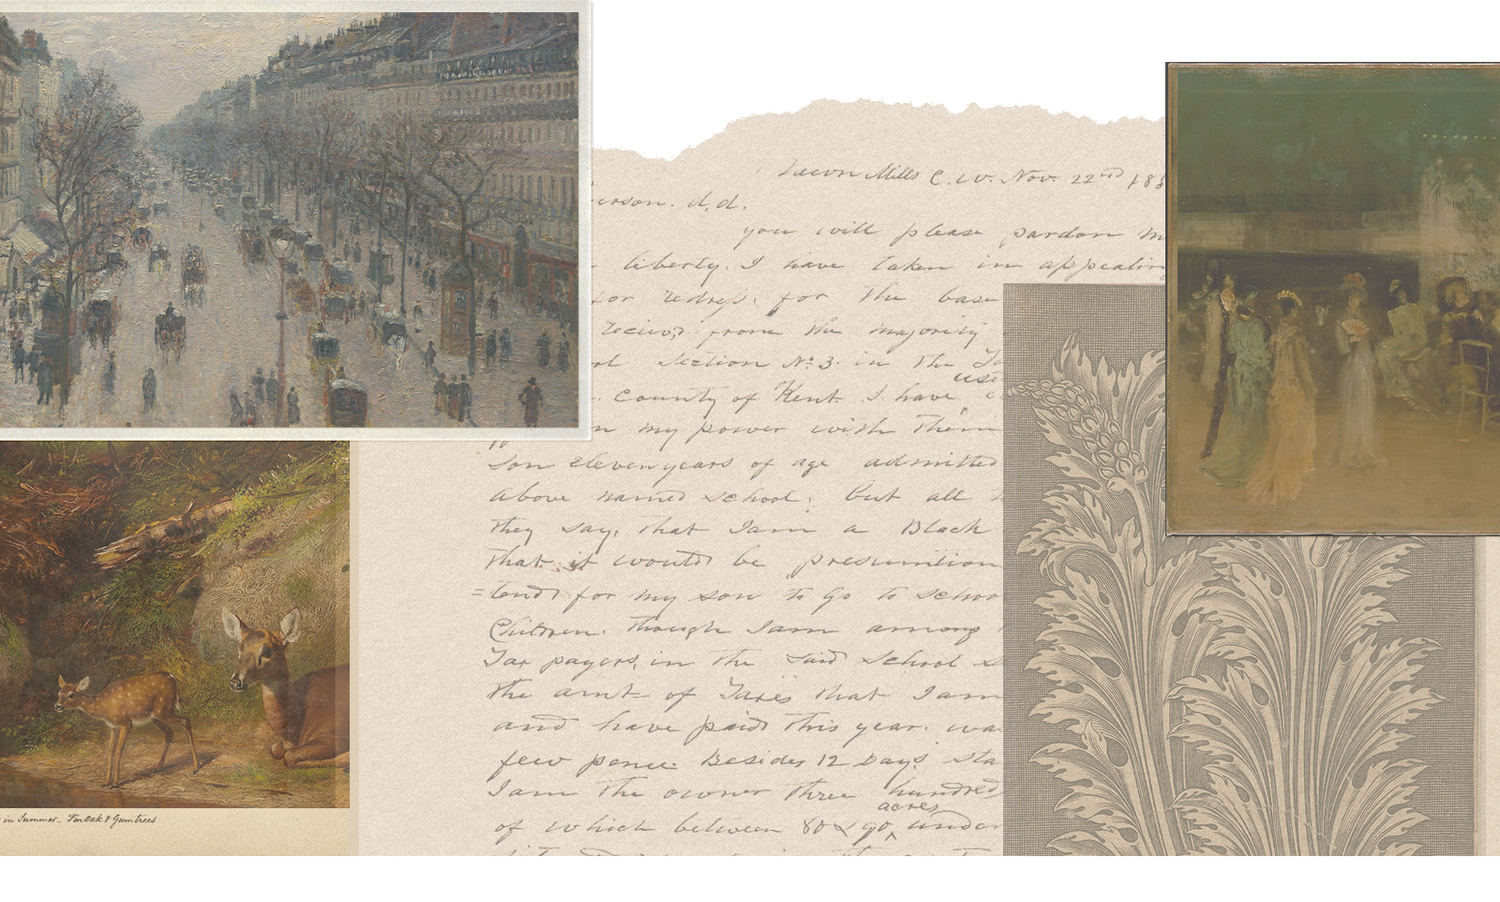 Mills C.W. Nov. 22nd 185
erson. d,d.
you will please pardon m
liberty. I have taken in appealin
for redress. for the base
from the majority
Section No. 3. in the
use
County of Kent. I have
my power with them
son eleven years of age admitted
above named school; but all
they say, that I am a Black
that it would be presumtion
=tend for my son to go to schoo
Children. though I am among
Tax payers, in the said school
the amt of Taxes that I am
and have paid this year. was
few pence. Besides 12 Days sta
I am the owner three hundred
acres
of which between 80 & 90 under
in Summer_ Pin Oak & Gumtrees